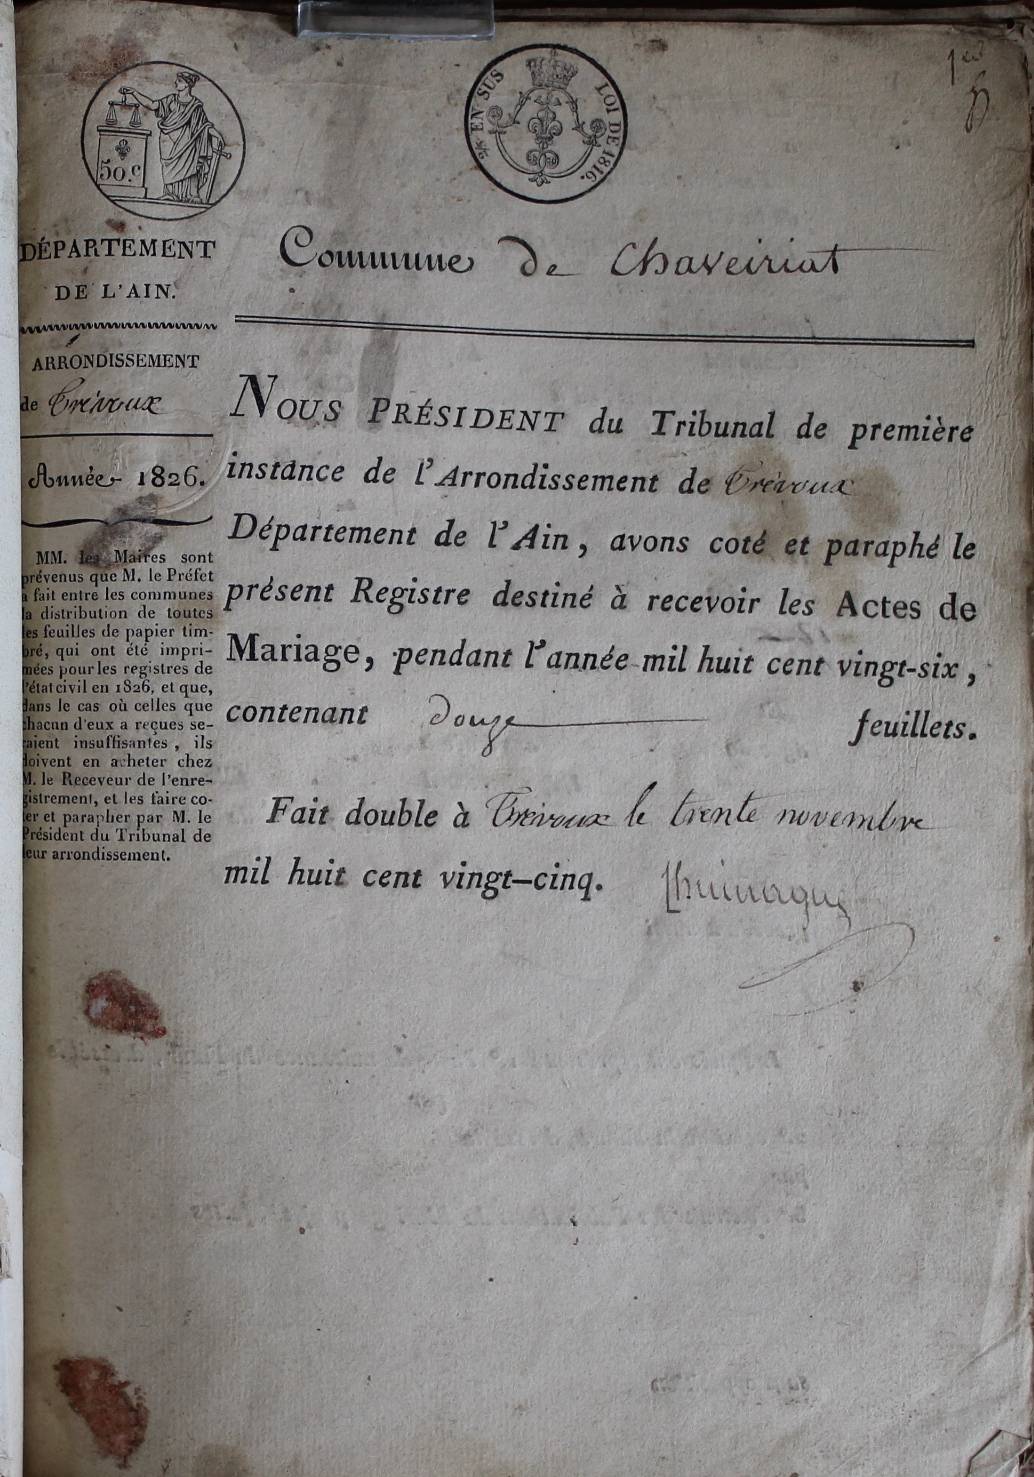 1er
50.c
2/10 EN SUS LOI DE 1816.
DÉPARTEMENT
DE L'AIN.
ARRONDISSEMENT
de Trévoux
Année 1826.
MM. les Maires sont
prévenus que M. le Préfet
a fait entre les communes
la distribution de toutes
les feuilles de papier tim-
bré, qui ont été impri-
mées pour les registres de
l'état civil en 1826, et que,
dans le cas où celles que
chacun d'eux a reçues se-
raient insuffisantes, ils
doivent en acheter chez
M. le Receveur de l'enre-
gistrement, et les faire co-
ter et parapher par M. le
Président du Tribunal de
leur arrondissement.
Commune de Chaveiriat
NOUS PRÉSIDENT du Tribunal de première
instance de l'Arrondissement de Trévoux
Département de l'Ain, avons coté et paraphé le
présent Registre destiné à recevoir les Actes de
Mariage, pendant l'année mil huit cent vingt-six,
contenant douze feuillets.
Fait double à Trévoux le trente novembre
mil huit cent vingt-cinq.